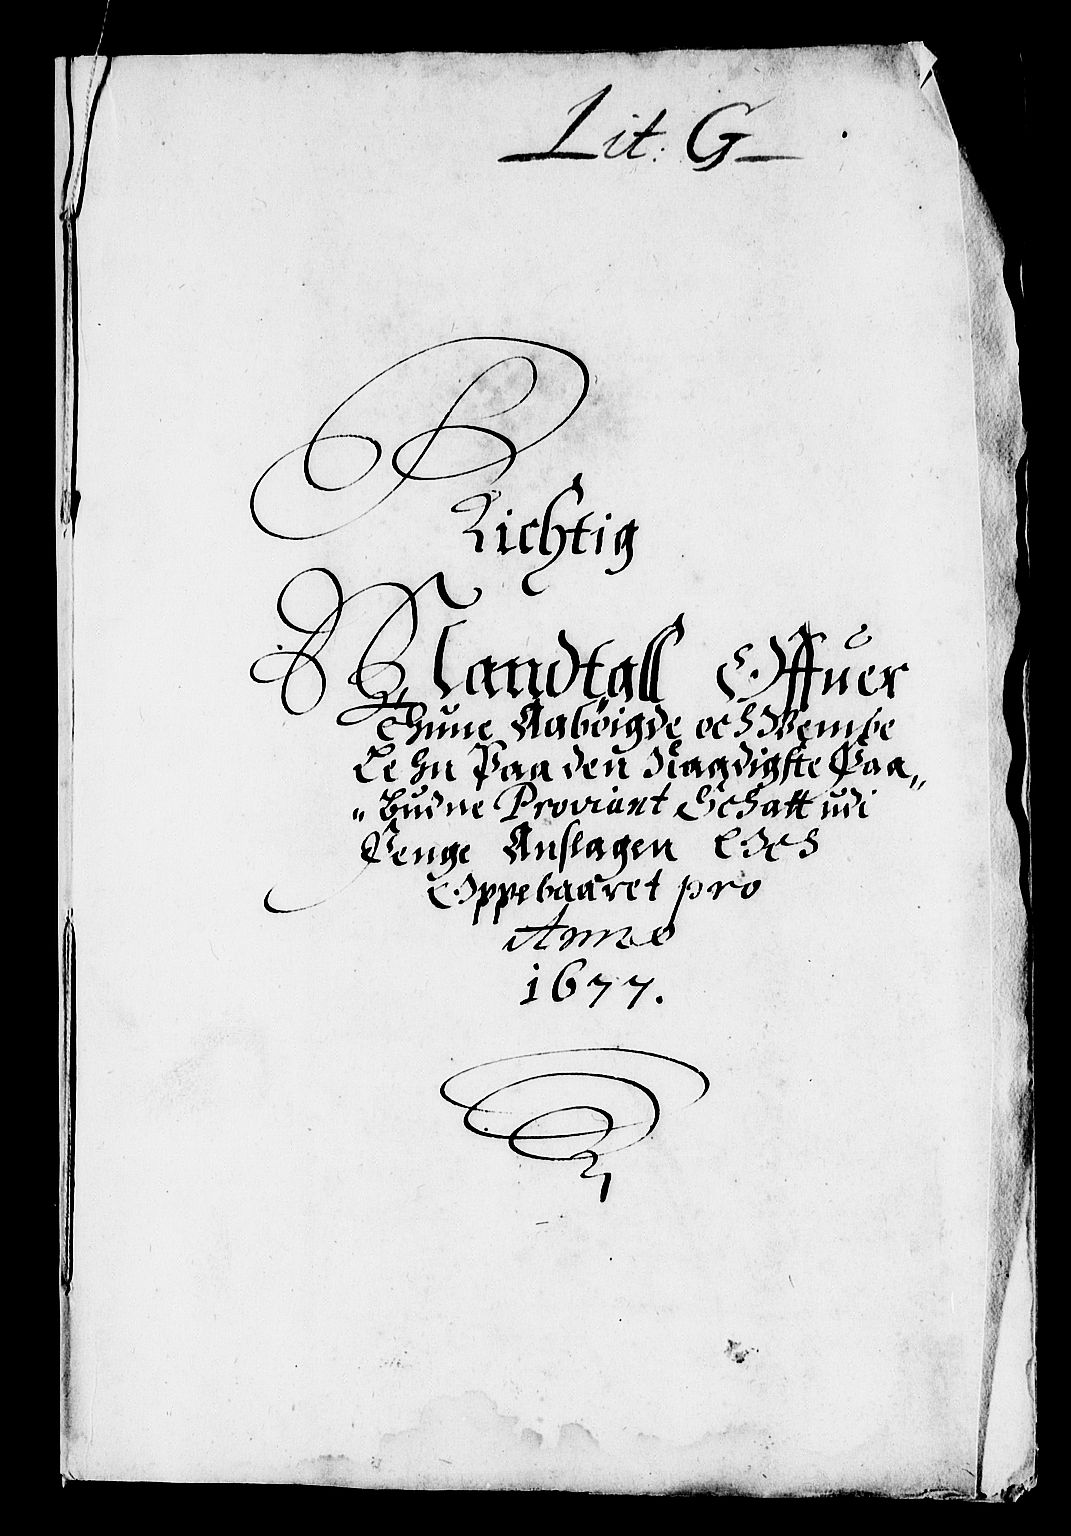 Lit: G
Richtig
Mandtall Offuer
Thune Aabøigde och Wembe
Lehn Paa den Naadigste Paa„
„budne Proviant Schatt udi
Penge Anslagen Och
Oppebaaret pro
Anno
1677.